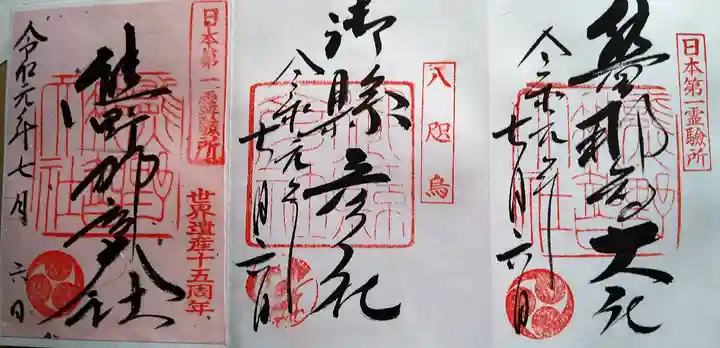 日本第一霊験所
熊野那智大社
令和元年七月六日
八咫烏
御縣彦社
令和元年七月六日
日本第一霊験所
熊野那智大社
世界遺産十五周年
令和元年七月六日